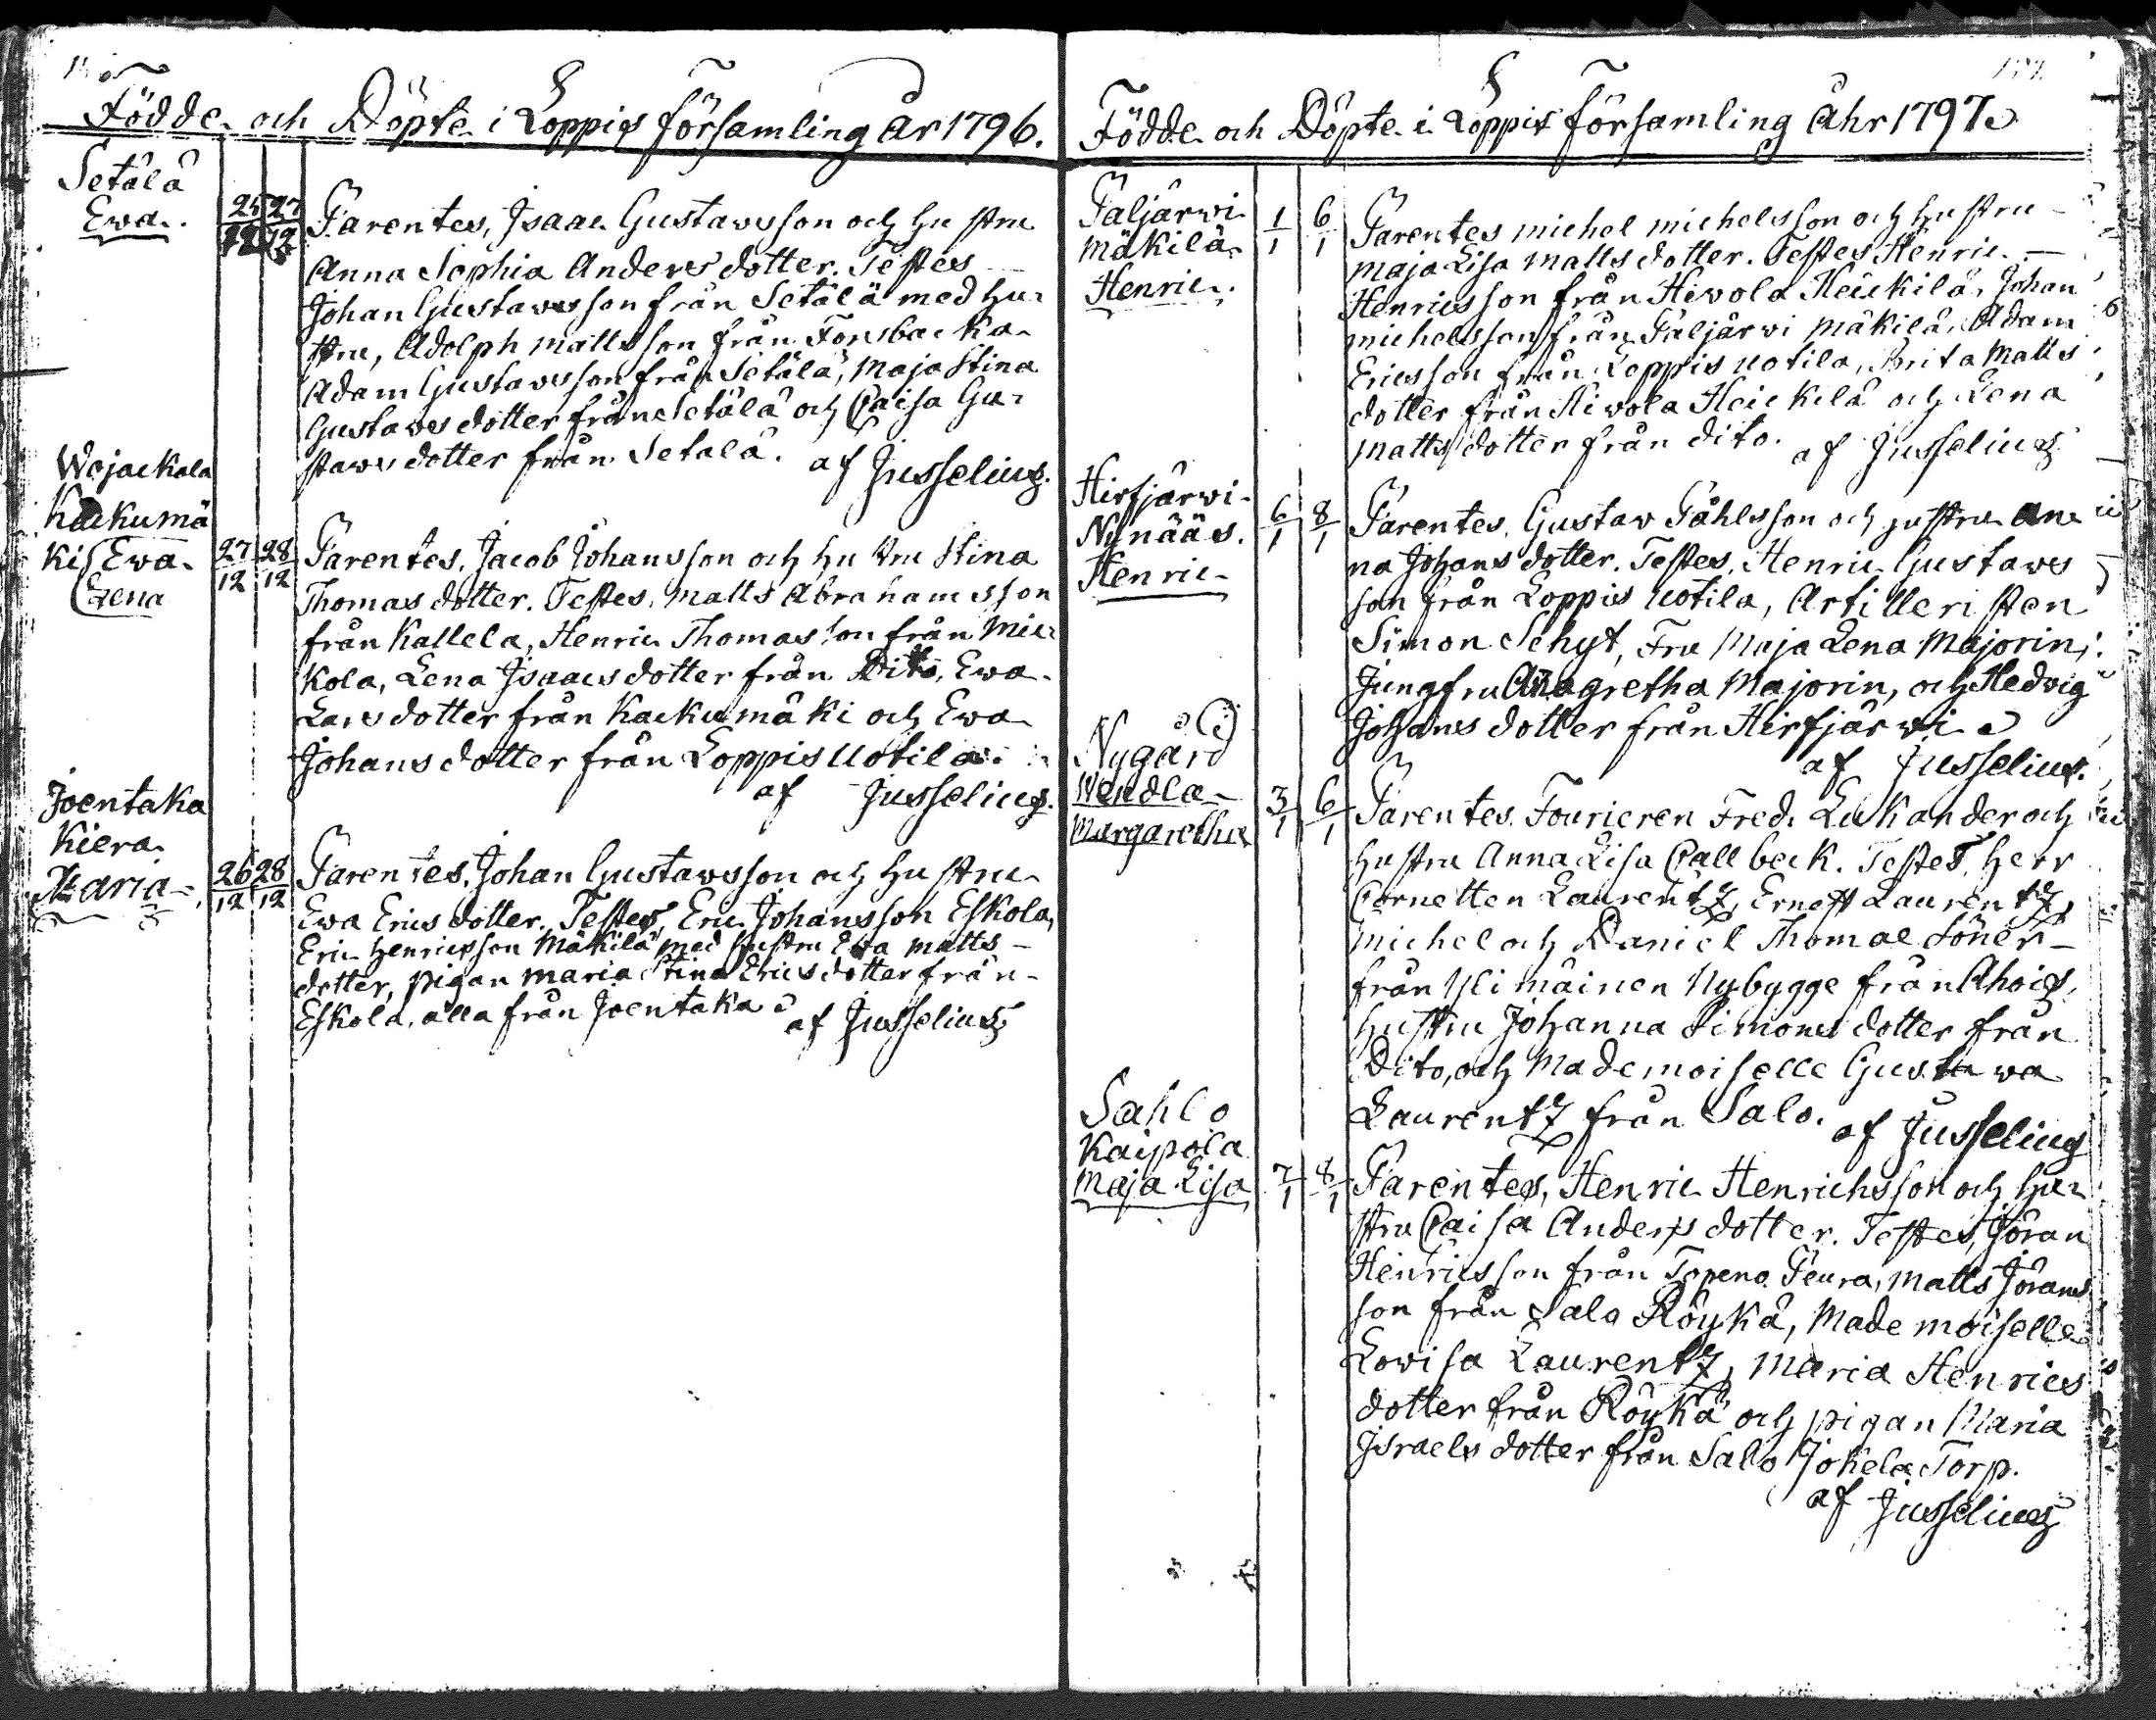 Födde och Döpte i Loppis församling år 1796.
Setälä
Ewa.
25 27
12 12
Parentes, Isaac Gustavsson och hustru
Anna Sophia Anders dotter. Testes
Johan Gustavsson från Setälä med hu-
stru, Adolph Mattsson från Forsbacka
Adam Gustavsson från Setälä, Maja Stina
Gustavs dotter från Setälä och Caisa Gu-
stavs dotter från Setälä. af Jusselius.
Wojackala
Kackumä
ki Ewa
Lena
27 28
12 12
Parentes, Jacob Johansson och hustru Stina
Thomas dotter. Testes, Matts Abrahamsson
från Kallela, Henric Thomasson från Mic-
kola, Lena Isaacs dotter från Dito, Ewa
Lars dotter från Kackumäki och Ewa
Johans dotter från Loppis Uotila.
af Jusselius.
Joentaka
Kiera
Maria
26 28
12 12
Parentes, Johan Gustavsson och hustru
Ewa Erics dotter. Testes, Eric Johansson Eskola,
Eric Henricsson Mäkilä med hustru Ewa Matts
dotter, pigan Maria Stina Erics dotter från
Eskola, alla från Joentaka af Jusselius
Födde och Döpte i Loppis församling åhr 1797.
Päljärwi
Mäkilä
Henric.
1 6
1 1
Parentes Michel Michelsson och hustru
Maja Lisa Matts dotter. Testes Henric
Henricsson från Hiwola Heickilä, Johan
Michelsson från Päljärwi Mäkilä, Adam
Ericsson från Loppis Uotila, Brita Matts
dotter från Hiwola Heickilä och Lena
Matts dotter från dito. af Jusselius
Hirsjärwi
Nynääs.
Henric
6 8
1 1
Parentes. Gustav Påhlsson och hustru An
na Johans dotter. Testes, Henric Gustavs
son från Loppis Uotila, Artilleristen
Simon Schyt, Fru Maja Lena Majorin,
Jungfru Anagretha Majorin, och Hedvig
Johans dotter från Hirsjärwi
af Jusselius.
Nygård
Wendla
Margaretha
3 6
1 1
Parentes. Fourieren Fred. Lukander och
hustru Anna Lisa Callbeck. Testes, Herr
Cornetten Laurentz, Ernst Laurentz,
Michel och Daniel Thomae Söner
från Ylimäinen Nybygge från Ahois,
hustru Johanna Simons dotter från
Dito, och Mademoiselle Gustawa
Laurentz från Salo. af Jusselius
Sahlo
Kaipola
Maja Lisa
7 8
1 1
Parentes, Henric Henrichsson och hu-
stru Caisa Anders dotter. Testes, Jöran
Henricsson från Topeno Peura, Matts Jörans
son från Salo Röykä, Mademoiselle
Lowisa Laurentz, Maria Henrics
dotter från Röykä och pigan Maria
Israels dotter från Salo Jokela Torp.
af Jusselius